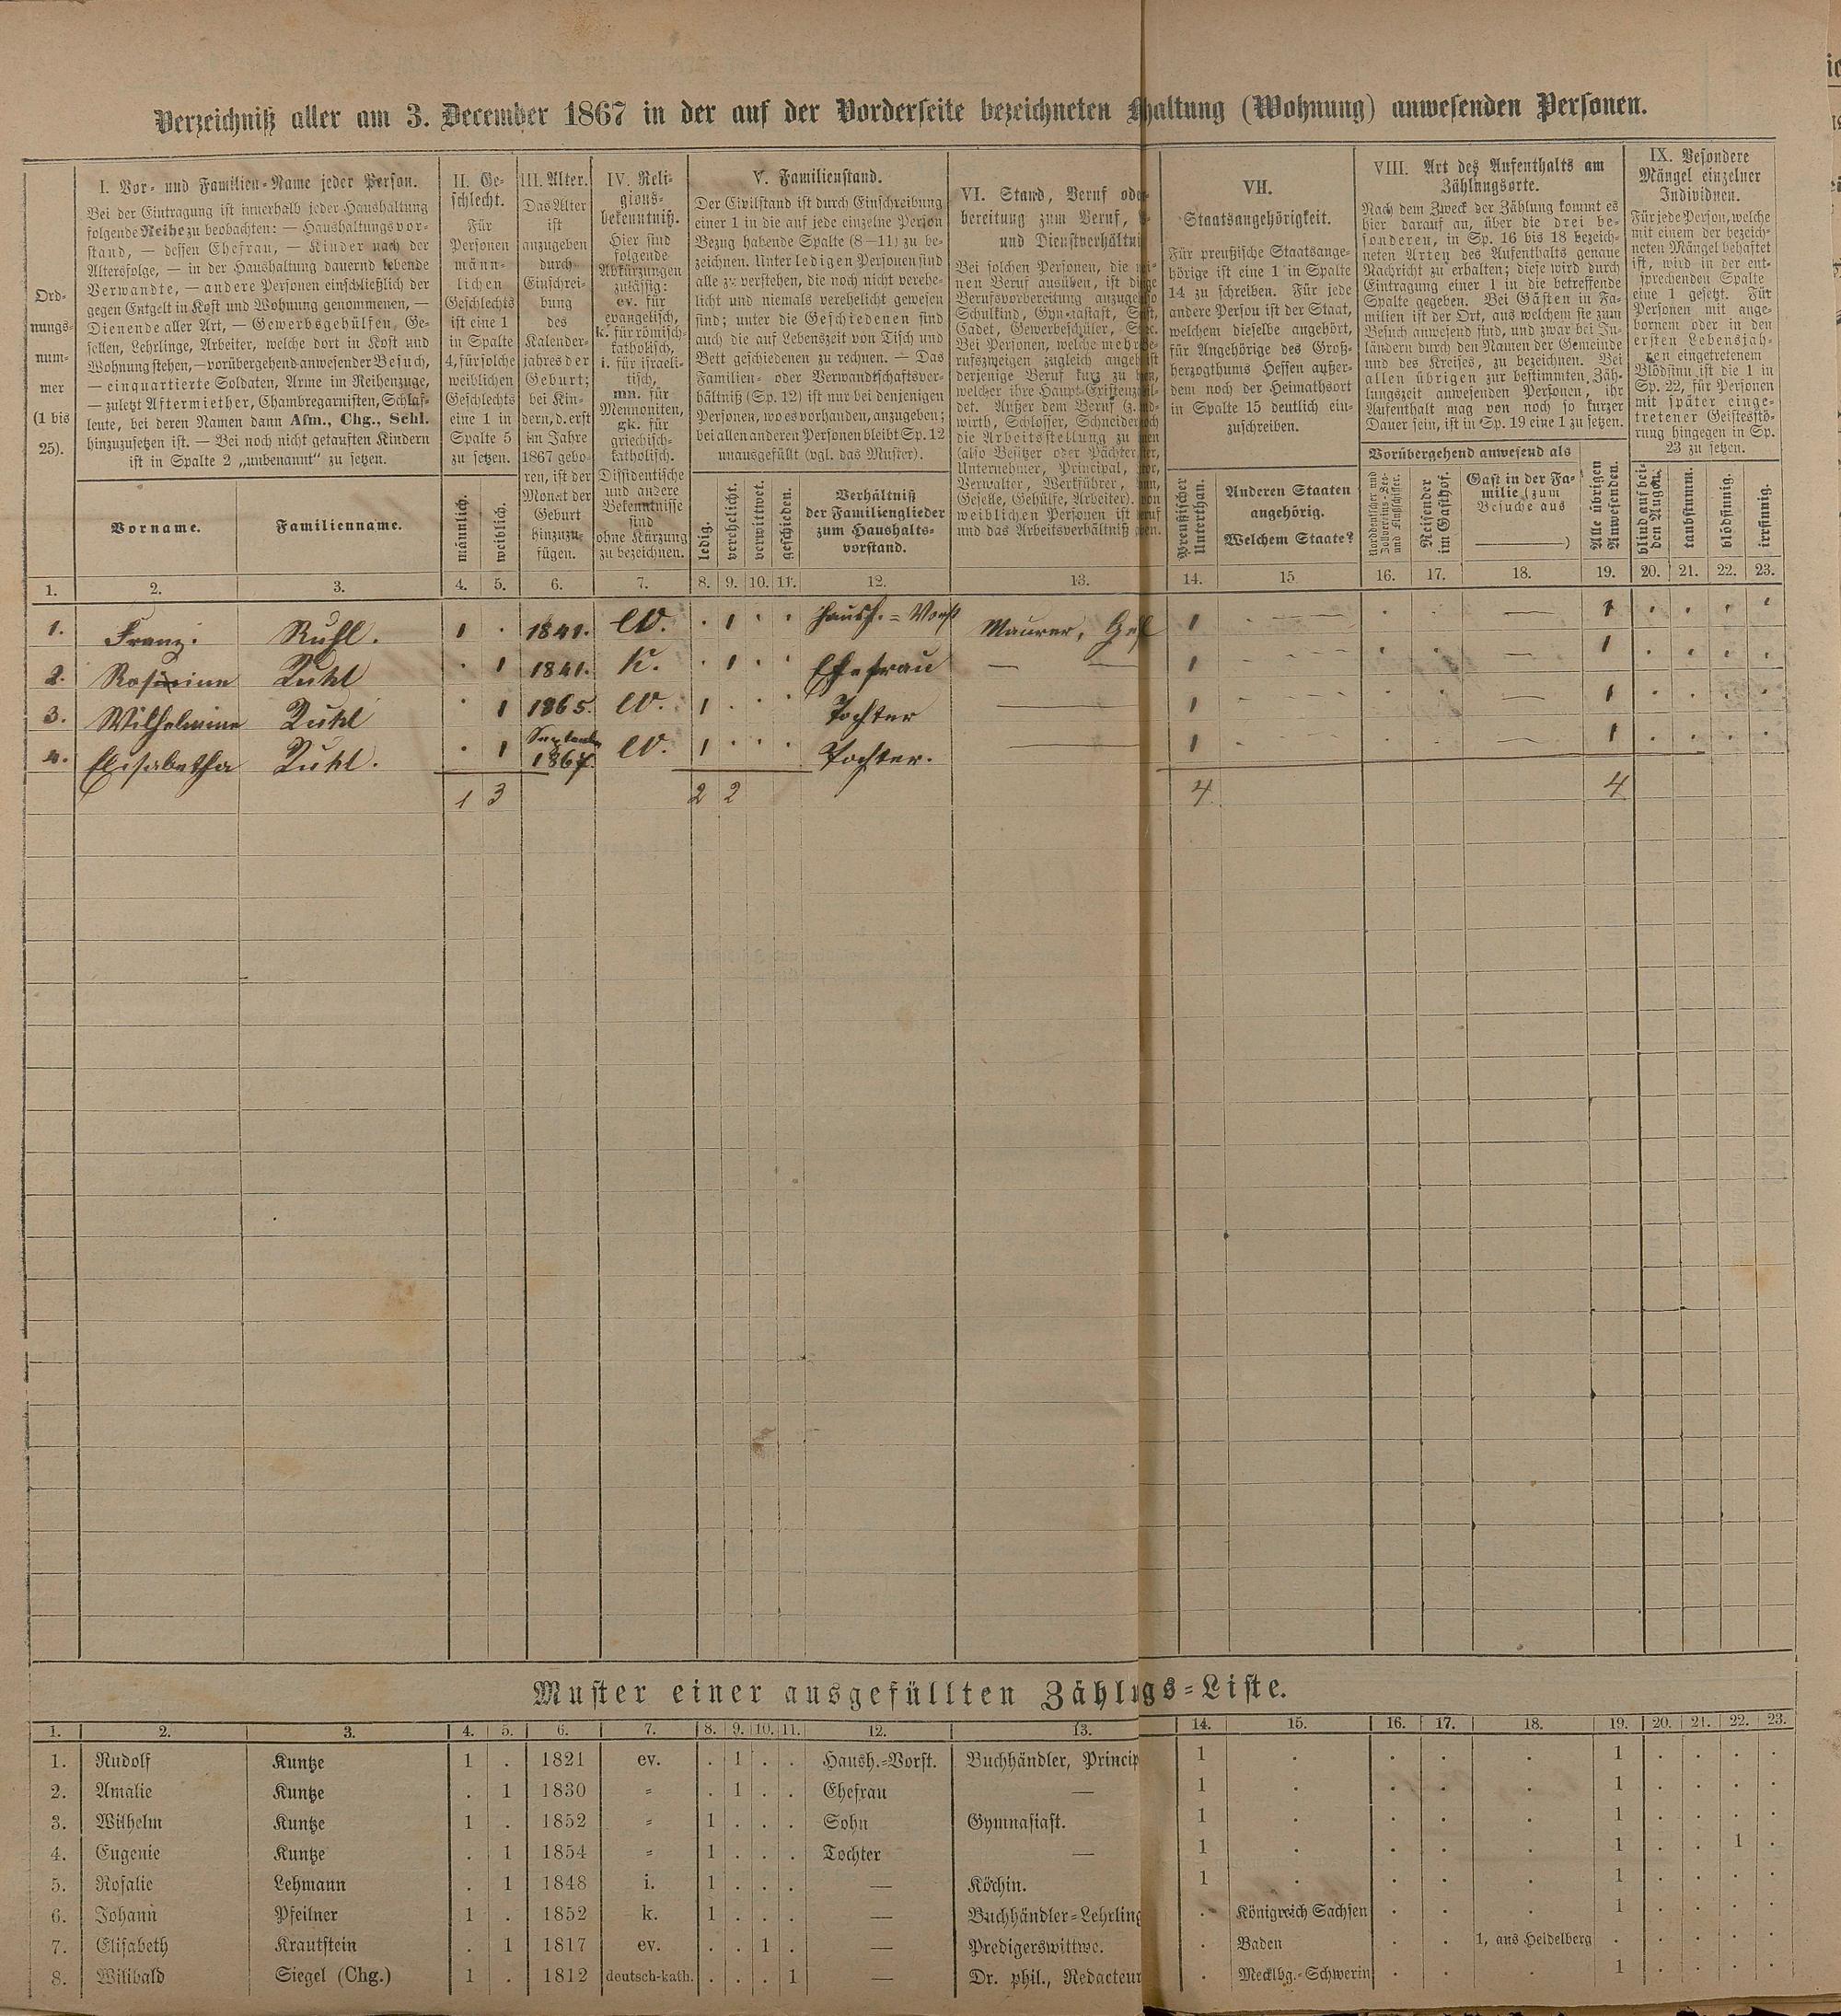 Verzeichniß aller am 3. December 1867 in der auf der Vorderseite bezeichneten haltung (Wohnung) anwesenden Personen.
Ord-
nungs-
num-
mer
(1 bis
25).
I. Vor- und Familien-Name jeder Person.
Bei der Eintragung ist innerhalb jeder Haushaltung
folgende Reihe zu beobachten: — Haushaltungsvor-
stand, — dessen Ehefrau, — Kinder nach der
Altersfolge, — in der Haushaltung dauernd lebende
Verwandte, — andere Personen einschließlich der
gegen Entgelt in Kost und Wohnung genommenen, —
Dienende aller Art, — Gewerbsgehülfen, Ge-
sellen, Lehrlinge, Arbeiter, welche dort in Kost und
Wohnung stehen, — vorübergehend anwesender Besuch,
— einquartierte Soldaten, Arme im Reihenzuge,
— zuletzt Aftermiether, Chambregarnisten, Schlaf-
leute, bei deren Namen dann Afm., Chg., Schl.
hinzuzusetzen ist. — Bei noch nicht getauften Kindern
ist in Spalte 2 „unbenannt" zu setzen.
Vorname.
Familienname.
II. Ge-
schlecht.
Für
Personen
männ-
lichen
Geschlechts
ist eine 1
in Spalte
4, für solche
weiblichen
Geschlechts
eine 1 in
Spalte 5
zu setzen.
männlich.
weiblich.
III. Alter.
Das Alter
ist
anzugeben
durch
Einschrei-
bung
des
Kalender-
jahres der
Geburt;
bei Kin-
dern, d. erst
im Jahre
1867 gebo-
ren, ist der
Monat der
Geburt
hinzuzu-
fügen.
IV. Reli-
gions-
bekenntniß.
Hier sind
folgende
Abkürzungen
zulässig:
ev. für
evangelisch,
k. für römisch-
katholisch,
i. für israeli-
tisch,
mn. für
Mennoniten,
gk. für
griechisch-
katholisch.
Dissidentische
und andere
Bekenntnisse
sind
ohne Kürzung
zu bezeichnen.
V. Familienstand.
Der Civilstand ist durch Einschreibung
einer 1 in die auf jede einzelne Person
Bezug habende Spalte (8—11) zu be-
zeichnen. Unter ledigen Personen sind
alle zu verstehen, die noch nicht verehe-
licht und niemals verehelicht gewesen
sind; unter die Geschiedenen sind
auch die auf Lebenszeit von Tisch und
Bett geschiedenen zu rechnen. — Das
Familien- oder Verwandtschaftsver-
hältniß (Sp. 12) ist nur bei denjenigen
Personen, wo es vorhanden, anzugeben;
bei allen anderen Personen bleibt Sp. 12
unausgefüllt (vgl. das Muster).
ledig.
verehelicht.
verwittwet.
geschieden.
Verhältniß
der Familienglieder
zum Haushalts-
vorstand.
VI. Stand, Beruf oder
bereitung zum Beruf,
und Dienstverhältni
Bei solchen Personen, die
nen Beruf ausüben, ist
Berufsvorbereitung anzuge
Schulkind, Gymnasiast,
Cadet, Gewerbeschüler,
Bei Personen, welche mehr
rufszweigen zugleich angeh
derjenige Beruf kurz zu
welcher ihre Haupt-Existenz
det. Außer dem Beruf (z.
wirth, Schlosser, Schneider
die Arbeitsstellung zu
(also Besitzer oder Pächter,
Unternehmer, Principal,
Verwalter, Werkführer,
Geselle, Gehülfe, Arbeiter).
weiblichen Personen ist
und das Arbeitsverhältniß
VII.
Staatsangehörigkeit.
Für preußische Staatsange-
hörige ist eine 1 in Spalte
14 zu schreiben. Für jede
andere Person ist der Staat,
welchem dieselbe angehört,
für Angehörige des Groß-
herzogthums Hessen außer-
dem noch der Heimathsort
in Spalte 15 deutlich ein-
zuschreiben.
Preußischer
Unterthan.
Anderen Staaten
angehörig.
Welchem Staate?
VIII. Art des Aufenthalts am
Zählungsorte.
Nach dem Zweck der Zählung kommt es
hier darauf an, über die drei be-
sonderen, in Sp. 16 bis 18 bezeich-
neten Arten des Aufenthalts genaue
Nachricht zu erhalten; diese wird durch
Eintragung einer 1 in die betreffende
Spalte gegeben. Bei Gästen in Fa-
milien ist der Ort, aus welchem sie zum
Besuch anwesend sind, und zwar bei In-
ländern durch den Namen der Gemeinde
und des Kreises, zu bezeichnen. Bei
allen übrigen zur bestimmten Zäh-
lungszeit anwesenden Personen, ihr
Aufenthalt mag von noch so kurzer
Dauer sein, ist in Sp. 19 eine 1 zu setzen.
Vorübergehend anwesend als
Norddeutscher und
Zollvereins-See-
und Flußschiffer.
Reisender
im Gasthof.
Gast in der Fa-
milie (zum
Besuche aus
)
Alle übrigen
Anwesenden.
IX. Besondere
Mängel einzelner
Individuen.
Für jede Person, welche
mit einem der bezeich-
neten Mängel behaftet
ist, wird in der ent-
sprechenden Spalte
eine 1 gesetzt. Für
Personen mit ange-
bornem oder in den
ersten Lebensjah-
ren eingetretenem
Blödsinn ist die 1 in
Sp. 22, für Personen
mit später einge-
tretener Geistesstö-
rung hingegen in Sp.
23 zu setzen.
blind auf bei-
den Augen.
taubstumm.
blödsinnig.
irrsinnig.
1. 2. 3. 4. 5. 6. 7. 8. 9. 10. 11. 12. 13. 14. 15. 16. 17. 18. 19. 20. 21. 22. 23.
1. Franz. Ruhl. 1 . 1841. ev. . 1 . . Haush.=Vorst Maurer, Ges 1 . — . . — 1 . . . .
2. Rosine Ruhl . 1 1841. K. . 1 . . Ehefrau — — 1 . — . . — 1 . . . .
3. Wilhelmine Ruhl . 1 1865. ev. 1 . . . Tochter — 1 . — . . — 1 . . . .
4. Elisabetha Ruhl. . 1 September 1867. ev. 1 . . . Tochter. — 1 . — . . — 1 . . . .
1 3 2 2 4 4
Muster einer ausgefüllten Zählu gs=Liste.
1. 2. 3. 4. 5. 6. 7. 8. 9. 10. 11. 12. 13. 14. 15. 16. 17. 18. 19. 20. 21. 22. 23.
1. Rudolf Kuntze 1 . 1821 ev. . 1 . . Haush.=Vorst. Buchhändler, Princip 1 . . . . 1 . . . .
2. Amalie Kuntze . 1 1830 = . 1 . . Ehefrau — 1 . . . . 1 . . . .
3. Wilhelm Kuntze 1 . 1852 = 1 . . . Sohn Gymnasiast. 1 . . . . 1 . . . .
4. Eugenie Kuntze . 1 1854 = 1 . . . Tochter — 1 . . . . 1 . . 1 .
5. Rosalie Lehmann . 1 1848 i. 1 . . . — Köchin. 1 . . . . 1 . . . .
6. Johann Pfeilner 1 . 1852 k. 1 . . . — Buchhändler=Lehrling . Königreich Sachsen . . . 1 . . . .
7. Elisabeth Krautstein . 1 1817 ev. . . 1 . — Predigerswittwe. . Baden . . 1, aus Heidelberg . . . . .
8. Wilibald Siegel (Chg.) 1 . 1812 deutsch-kath. . . . 1 — Dr. phil., Redacteur . Mecklbg.=Schwerin . . . 1 . . . .